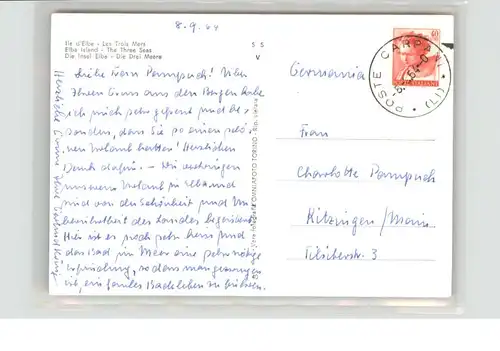 8.9.64
Ile d'Elbe - Les Trois Mers
Elba Island - The Three Seas
Die Insel Elbe - Die Drei Meere
S S
V
Liebe Frau Pampuch! Über
Ihren Gruss aus den Bergen habe
ich mich sehr gefreut und be-
sonders, dass Sie so einen schö-
nen Urlaub hatten! Herzlichen
Dank dafür. - Wir verbringen
unseren Urlaub in Elba und
sind von der Schönheit und Un-
berührtheit des Landes begeistert.
Hier ist es noch sehr heiss und
das Bad im Meer eine sehr nötige
Erfrischung, so dass man gezwungen
ist, ein faules Badeleben zu führen.
Herzliche Grüsse Ihre Gertrud
OMNIAFOTO TORINO - Rip. vietata
Germania
Frau
Charlotte Pampuch
Kitzingen / Main
Tilsiterstr. 3
POSTE CARPANI (LI)